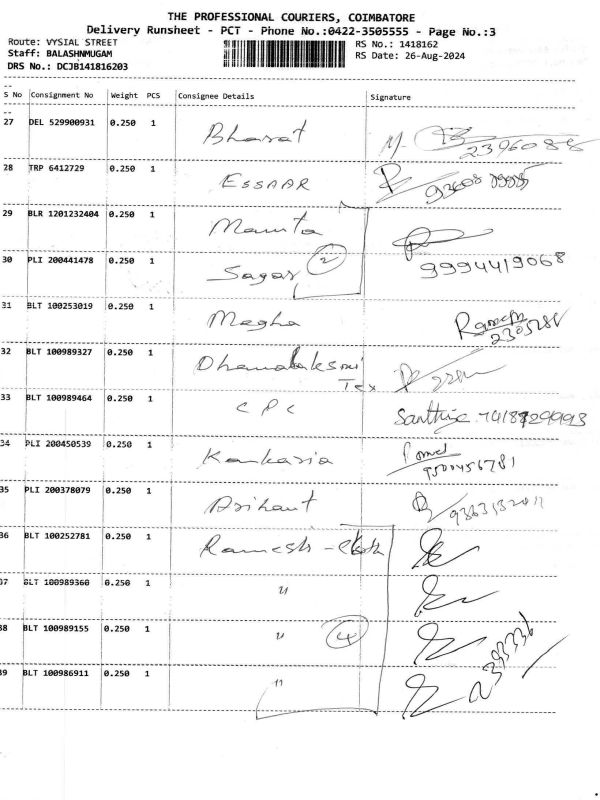 THE PROFESSIONAL COURIERS, COIMBATORE
Delivery Runsheet - PCT - Phone No.:0422-3505555 - Page No.:3
Route: VYSIAL STREET
RS No.: 1418162
Staff: BALASHNMUGAM
RS Date: 26-Aug-2024
DRS No.: DCJB141816203
S No Consignment No Weight PCS Consignee Details Signature
27 DEL 529900931 0.250 1 Bharat 2396088
28 TRP 6412729 0.250 1 ESSAAR
29 BLR 1201232404 0.250 1 Mamta
30 PLI 200441478 0.250 1 Sagar 2 9994419068
31 BLT 100253019 0.250 1 Megha Ramesh
32 BLT 100989327 0.250 1 Dhanalaksmi
Tex
33 BLT 100989464 0.250 1 CPC
34 PLI 200450539 1 0.250 Kankaria 9500456781
35 PLI 200378079 0.250 1 Arihant
36 BLT 100252781 0.250 1 Ramesh - cloth
37 BLT 100989360 0.250 1 "
38 BLT 100989155 0.250 1 " 4
39 BLT 100986911 0.250 1 "